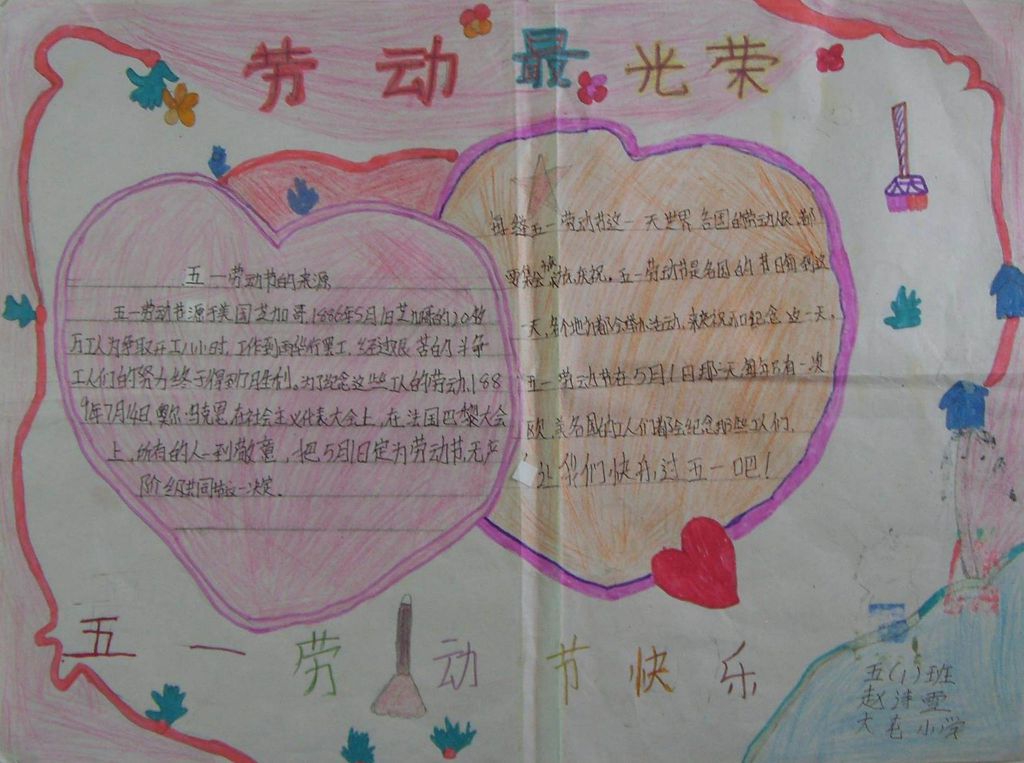 劳动最光荣
五一劳动节的来源
五一劳动节源于美国芝加哥,1886年5月1日芝加哥的20多
万工人为争取 工八小时,工作到 举行罢工,经过艰苦的斗争
工人们的努力终于得到了胜利,为了纪念这些工人的劳动,188
9年7月14日,奥尔马克思 在社会主义代表大会上,在法国巴黎大会
上,所有的人一到 ,把5月1日定为劳动节,无产
阶级共同 一决定.
每 五一劳动节这一天世界各国的劳动人民都
要集会 庆祝。五一劳动节是各国的节日每到这
一天,各个地方都会举办活动,来祝福和纪念这一天。
五一劳动节在5月1日那一天每年只有一次
欧美各国的工人们都会纪念那些工人们,
让我们快乐过五一吧!
五一劳动节快乐
五(1)班
赵诗雪
大屯小学